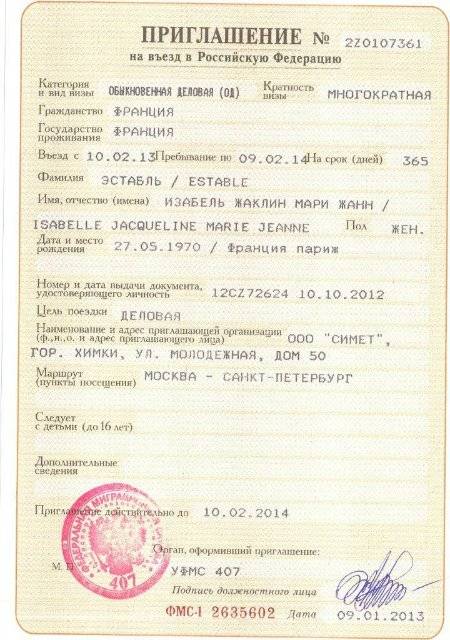 ПРИГЛАШЕНИЕ № 2Z0107361
на въезд в Российскую Федерацию
Категория и вид визы ОБЫКНОВЕННАЯ ДЕЛОВАЯ (ОД) Кратность визы МНОГОКРАТНАЯ
Гражданство ФРАНЦИЯ
Государство проживания ФРАНЦИЯ
Въезд с 10.02.13 Пребывание по 09.02.14 На срок (дней) 365
Фамилия ЭСТАБЛЬ / ESTABLE
Имя, отчество (имена) ИЗАБЕЛЬ ЖАКЛИН МАРИ ЖАНН /
ISABELLE JACQUELINE MARIE JEANNE Пол ЖЕН.
Дата и место рождения 27.05.1970 / Франция париж
Номер и дата выдачи документа,
удостоверяющего личность 12CZ72624 10.10.2012
Цель поездки ДЕЛОВАЯ
Наименование и адрес приглашающей организации
(ф.,и.,о. и адрес приглашающего лица) ООО "СИМЕТ",
ГОР. ХИМКИ, УЛ. МОЛОДЕЖНАЯ, ДОМ 50
Маршрут
(пункты посещения) МОСКВА - САНКТ-ПЕТЕРБУРГ
Следует
с детьми (до 16 лет)
Дополнительные
сведения
Приглашение действительно до 10.02.2014
Орган, оформивший приглашение:
М. П. УФМС 407
ФЕДЕРАЛЬНАЯ МИГРАЦИОННАЯ
407
Подпись должностного лица
ФМС-1 2635602 Дата 09.01.2013